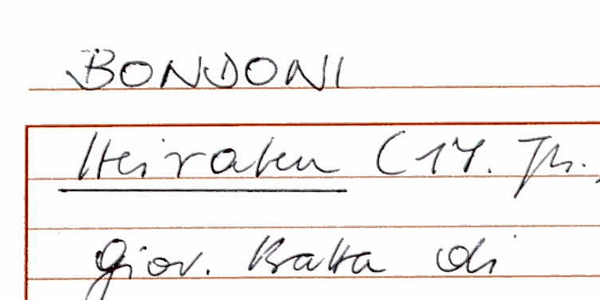 BONDONI
Heiraten (17. Jh.,
Giov. Batta di